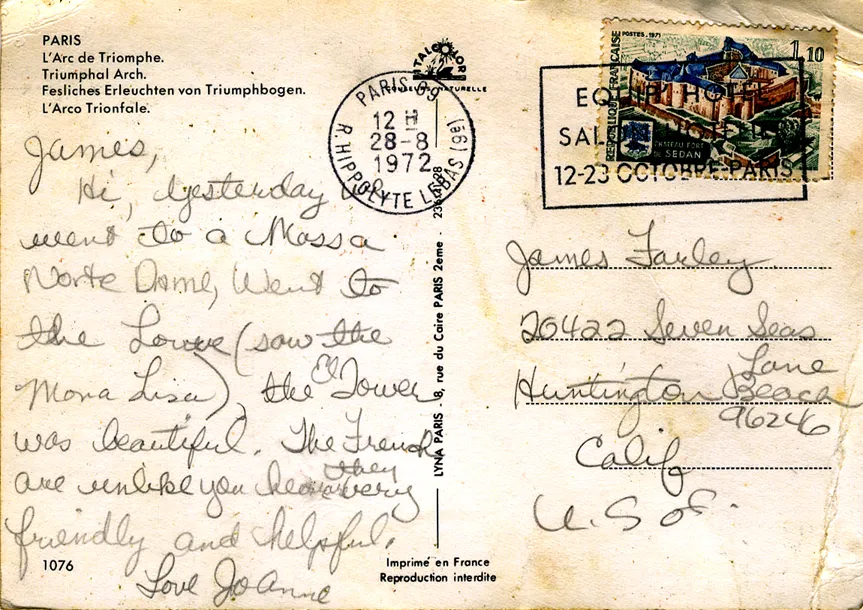 PARIS
L'Arc de Triomphe.
Triumphal Arch.
Fesliches Erleuchten von Triumphbogen.
L'Arco Trionfale.
ITALCOLOR
REPUBLIQUE FRANÇAISE
POSTES . 1971
1,10
CHATEAU FORT
DE SEDAN
PARIS 69
12 H
28-8
1972
R. HIPPOLYTE LEBAS (9e)
HOTEL
12-23 OCTOBRE-PARIS
James,
Hi, yesterday
went to a Massa
Norte Dame, Went to
the Louve (saw the
Mona Lisa), the El Tower
was beautiful. The French
are unlike you hear they very
friendly and helpful.
Love JoAnne
1076
LYNA PARIS - 8, rue du Caire PARIS 2eme -
Imprimé en France
Reproduction interdite
James Farley
20422 Seven Seas
Lane
Huntington Beach
96246
Calif
U.S of.